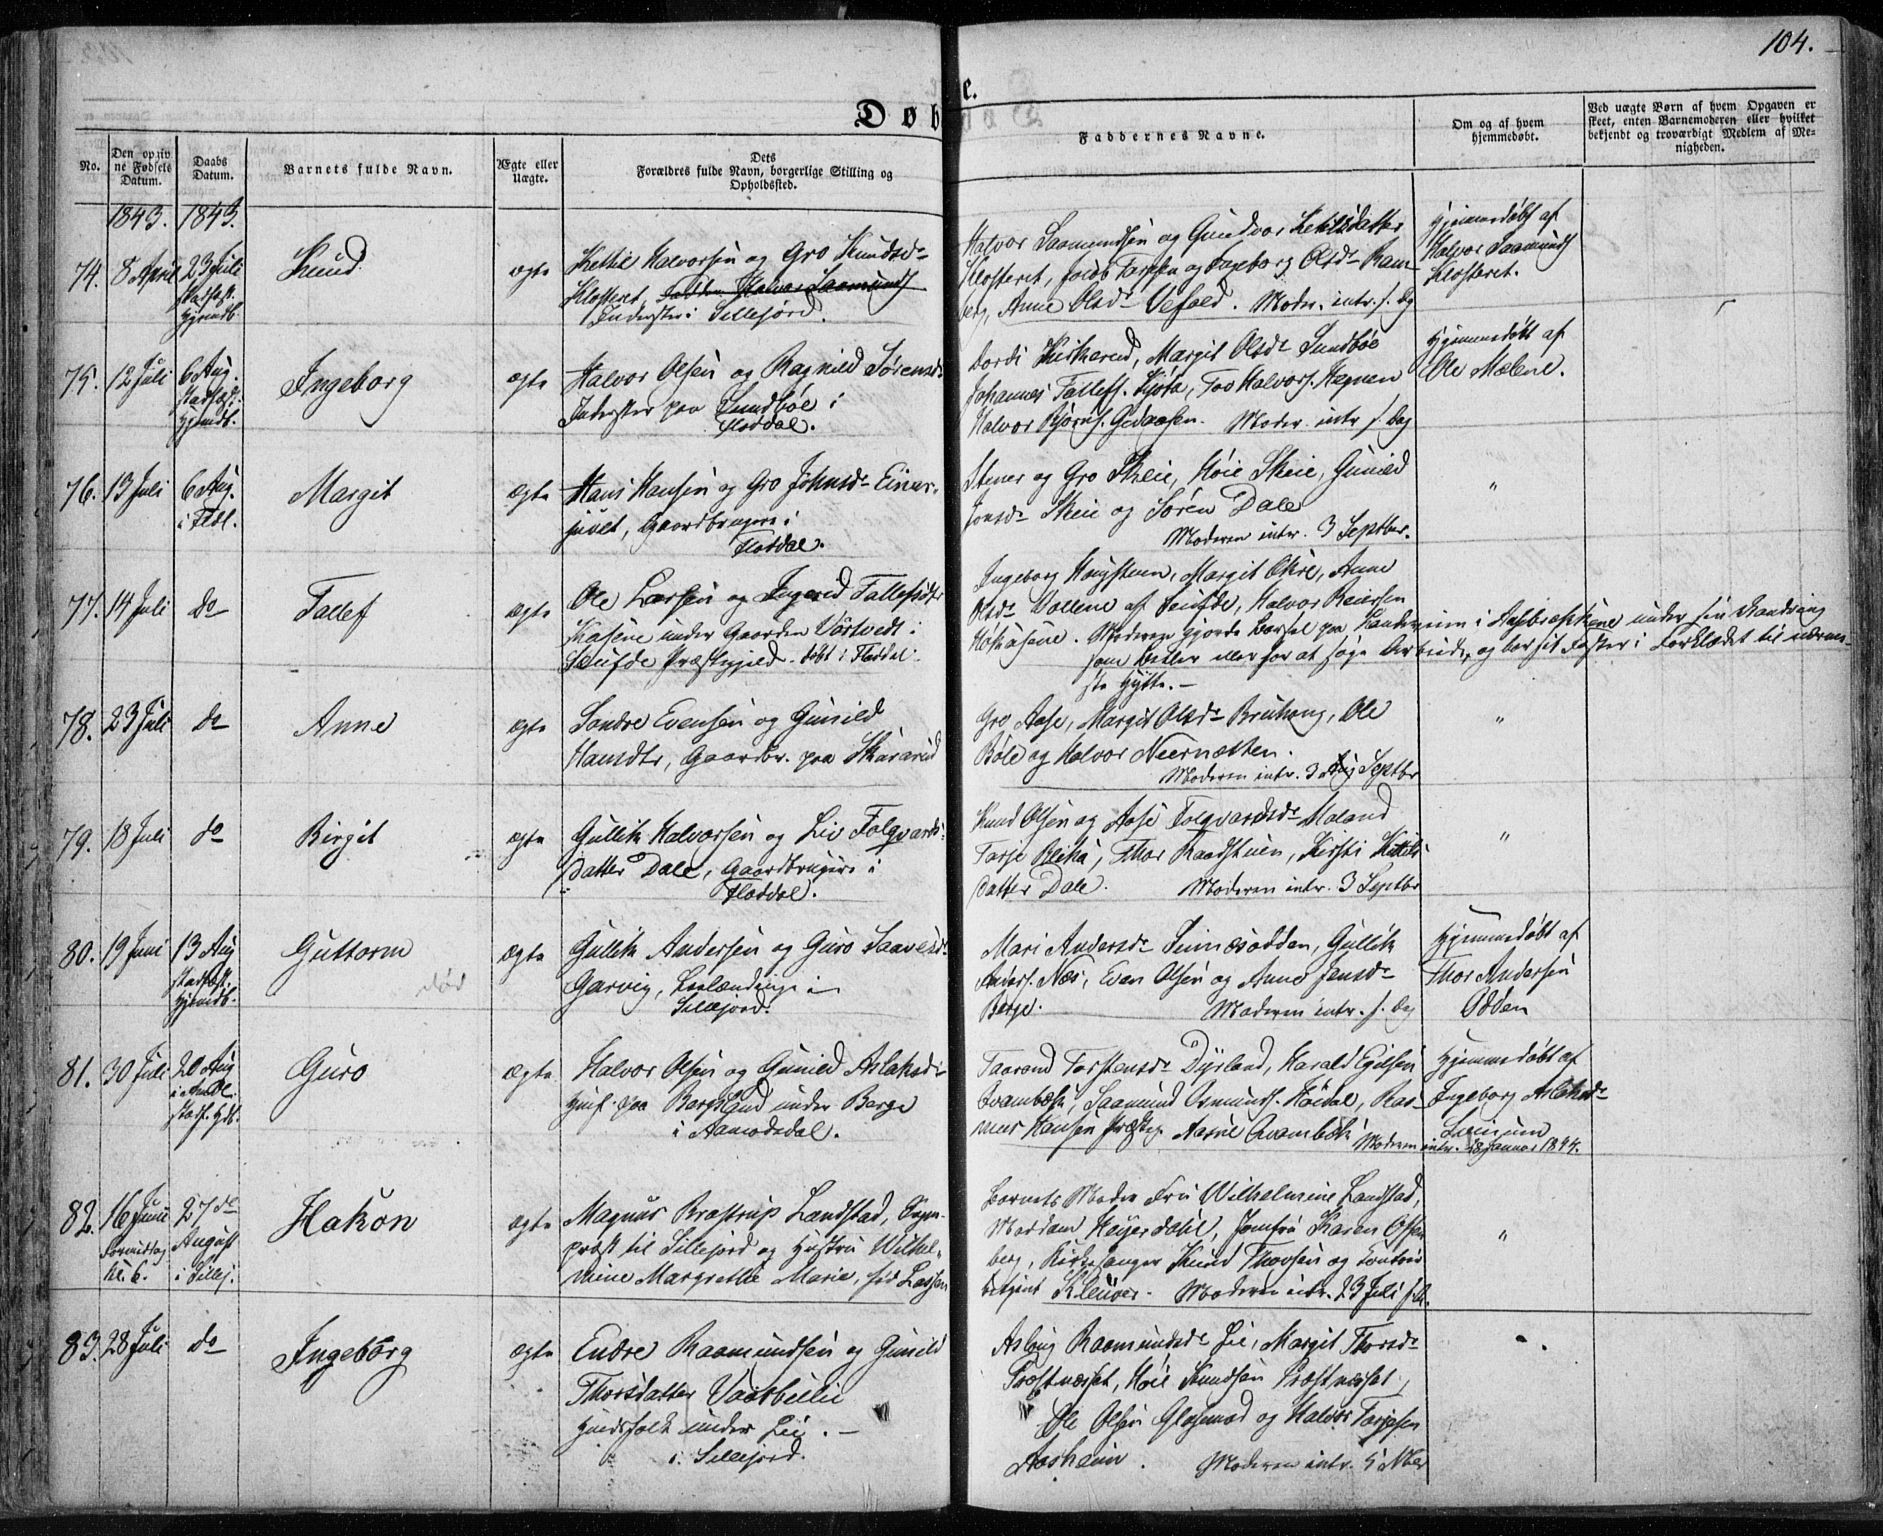 104.
Døbte.
No.
Den opgiv
ne Fødsels
Datum.
Daabs
Datum.
Barnets fulde Navn.
Ægte eller
Uægte.
Dets
Forældres fulde Navn, borgerlige Stilling og
Opholdssted.
Faddernes Navne.
Om og af hvem
hjemmedøbt.
Ved uægte Børn af hvem Opgaven er
skeet, enten Barnemoderen eller hvilket
bekjendt og troværdigt Medlem af Me-
nigheden.
1843. 1843.
74. 8 April 23 Juli
stadfæst.
hjemdb.
Knud
ægte
Kettil Halvorsen og Gro Knudsdr
Klosteret, Halvor Saamunds
Inderster i Sillejord.
Halvor Saamundsen og Gundvor Ketilsdatter
Klosteret, Jacob Tarjesen og Ingeborg Olsdr Ram-
berg, Anne Olsdr Vefald. Moder. intr. s. Dg
Hjemmedøbt af
Halvor Saamunds
Klosteret.
75. 12 Juli 6 Aug.
stadfæst.
hjemdb.
Ingeborg
ægte
Halvor Olsen og Ragnild Sørensdr
Inderster paa Sundboe i
Flatdal.
Dordi Kirkerud, Margit Olsdr Sundboe
Johannes Tallefs. Tov Halvors. Hegnen
Halvor Bjørns. Moder. intr. s. Dag
Hjemmedøbt af
Ole Mælene.
76. 13 Juli 6 Aug.
i Fldl.
Margit
ægte
Hans Hansen og Gro Johnsdr Einar-
Gaardbrugere i
Flatdal.
Stener og Gro Skeie, Høie Skeie, Gunild
Jonsdr Skeie og Søren Dale
Moderen intr. 3 Septbr.
"
77. 14 Juli do
Tallef
ægte
Ole Larsen og Ingerid Tallefsdtr
Kasene under Gaarden Vørtvedt i
Seufde Præstegjeld. døbt i Flatdal.
Ingeborg Haugstuen, Margit Okre, Anne
Olsdr Vollene af Seufde, Halvor Reiersen
Moderen gjorde Barsel paa i under sin Vandring
som Betler eller for at søge Arbeide, og bar sit Foster i Forklædet til nærme-
ste Hytte. —
78. 23 Juli do
Anne
ægte
Sondre Evensen og Gunild
Hansdtr, Gaardbr. paa
Gro Aase, Margit Olsdr Bruhaug, Ole
Bøle og Halvor Neernætten.
Moderen intr. 3 Septbr
"
79. 18 Juli do
Birgit
ægte
Gullik Halvorsen og Liv Folqvards-
datter Dale, Gaardbrugere i
Flatdal.
Knud Olsen og Aase Folqvardsdr Maland
Tarje Bleka, Thor Raadstuen, Kirsti Kittils
datter Dale. Moderen intr. 3 Septbr
"
80. 19 Juni 13 Aug
stadfæst.
hjemdb.
Guttorm
død
ægte
Gullik Andersen og Guro Saavesdr
Garvig, Leilændinge i
Sillejord.
Mari Andersdr Seinesodden, Gullik
Anders. Næs, Even Olsen og Anne Jensdr
Berge. Moderen intr. s. Dag
Hjemmedøbt af
Thor Andersen
Odden
81. 30 Juli 20 Aug
stadf. Hdb.
Guro
ægte
Halvor Olsen og Gunild Aslaksdr
Husf. paa Bergland under Berge
i Aamodsdal.
Taarand Torstensdr Dyrland, Harald Egilsen
Qvambæk, Saamund Osmunds. Høidal, Ras-
mus Hansen Aasne Qvambæk
Moderen intr. 28 Januar 1844.
Hjemmedøbt af
Ingeborg Aslaksdr
82. 16 Juni
Formiddag
Kl. 6.
27 de
August
i Sillej.
Hakon
ægte
Magnus Brostrup Landstad, Sogne-
præst til Sillejord og Hustru Wilhel-
mine Margrethe Marie, fød Lassen
Barnets Moder Fru Wilhelmine Landstad,
Madam Heyerdahl, Jomfru Karen Ossen
berg, Kirkesanger Knud Thorsen og
betjent Kleuver. Moderen intr. 23 Juli
"
83. 28 Juli do
Ingeborg
ægte
Endre Raamundsen og Gunild
Thorsdatter
Huusfolk under Lie. —
i Sillejord.
Aslaug Raamundsdr Lie, Margit Thorsdr
Præstnæsset, Høie Knudsen Præstnæsset,
Ole Olsen Glosemod og Halvor Tarjesen
Aasheim. Moderen intr. 5 Nber